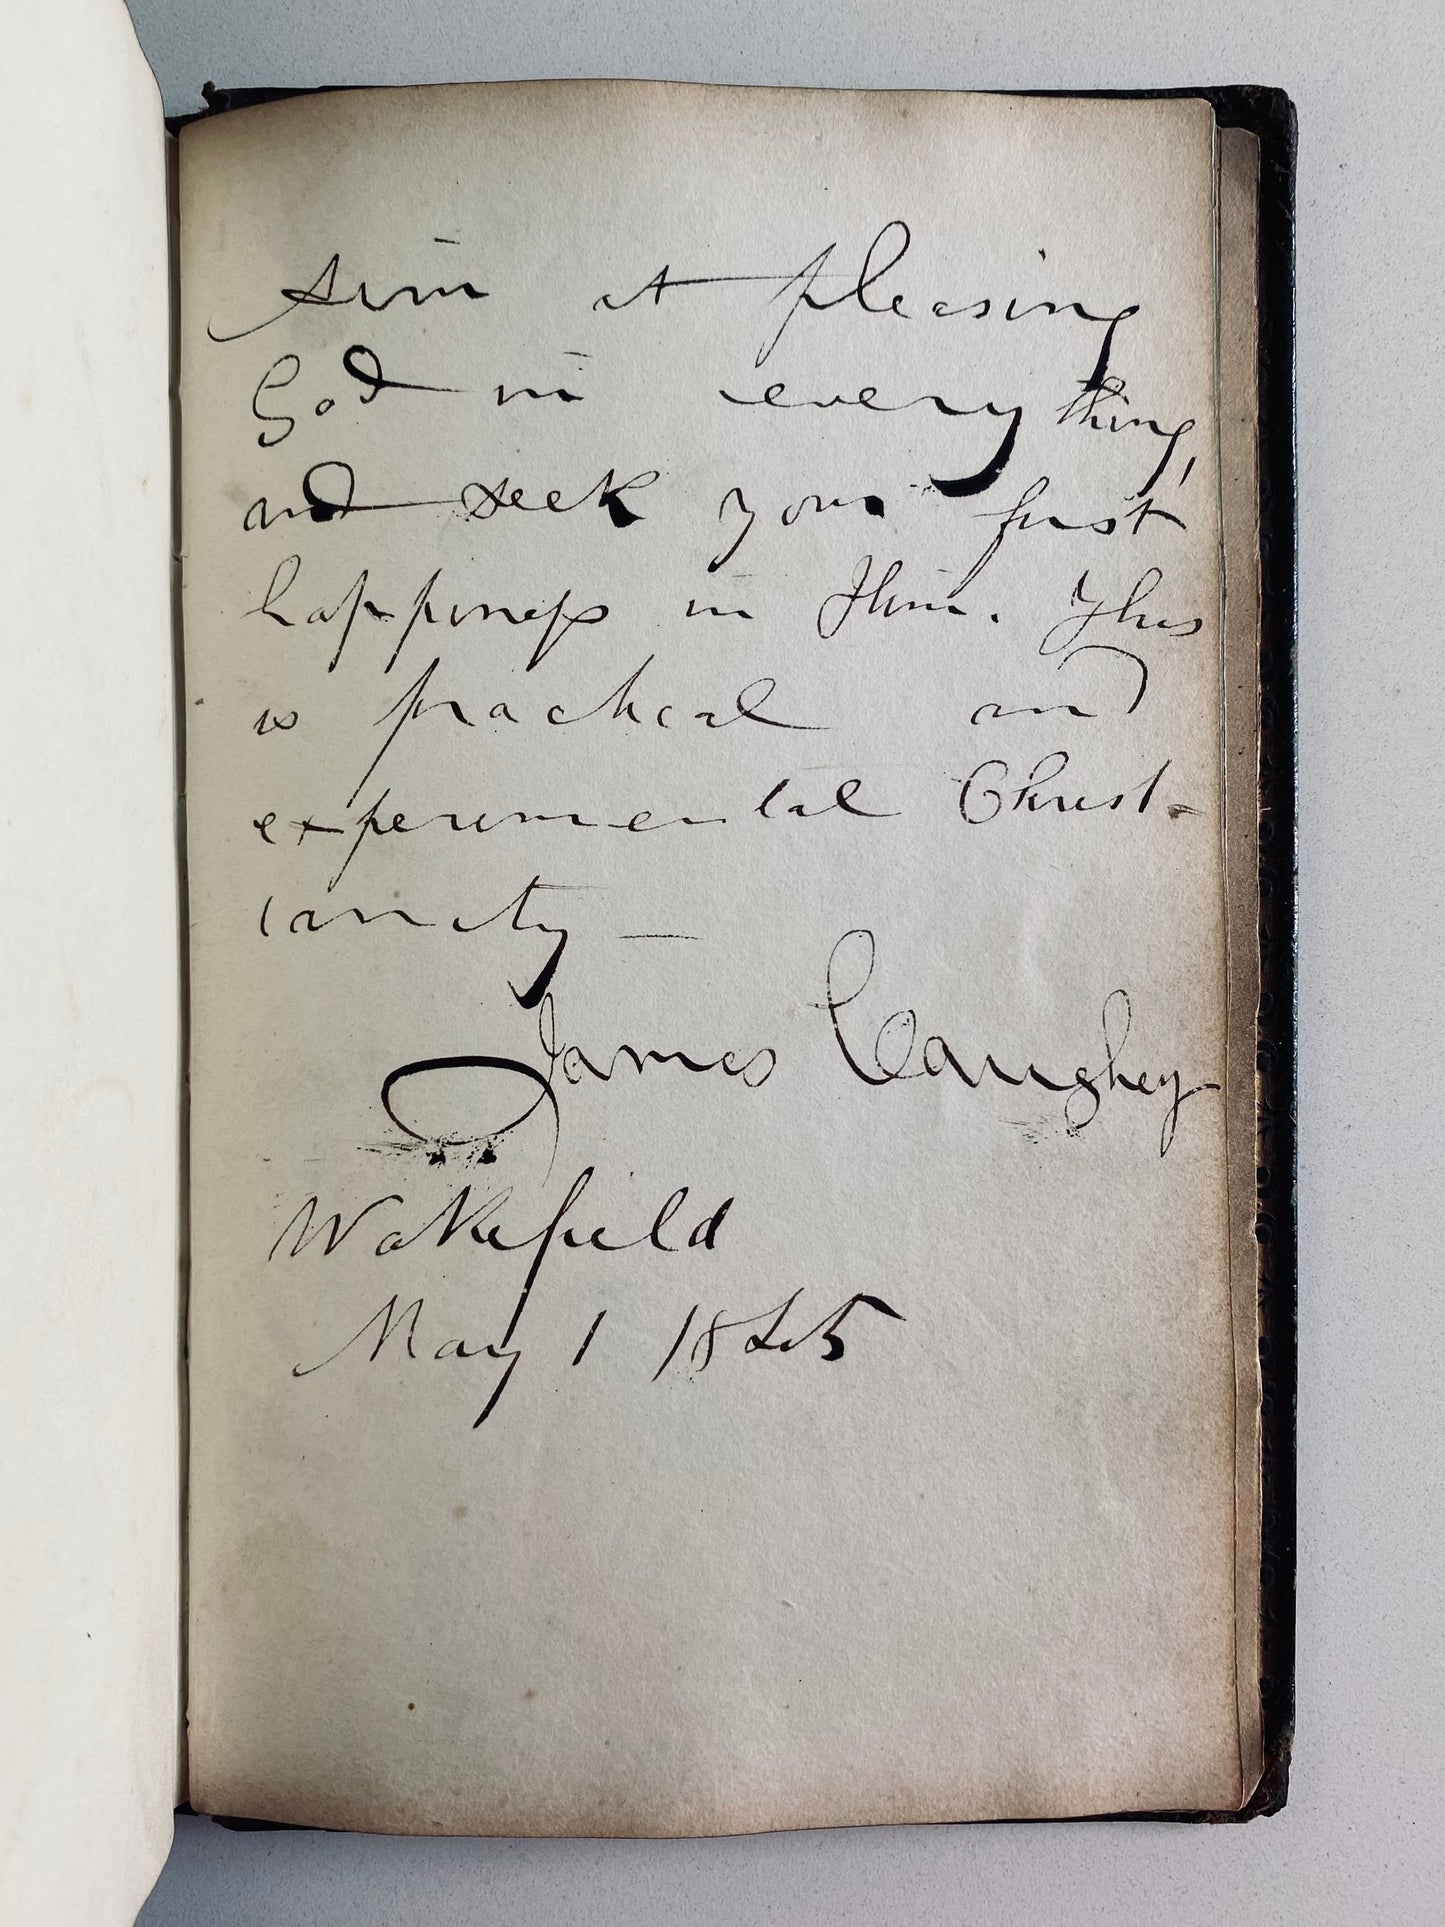 Aim at pleasing
God in everything,
and seek your first
happiness in Him. This
is practical and
experimental Christ-
ianity —
James Caughey
Wakefield
May 1 1845